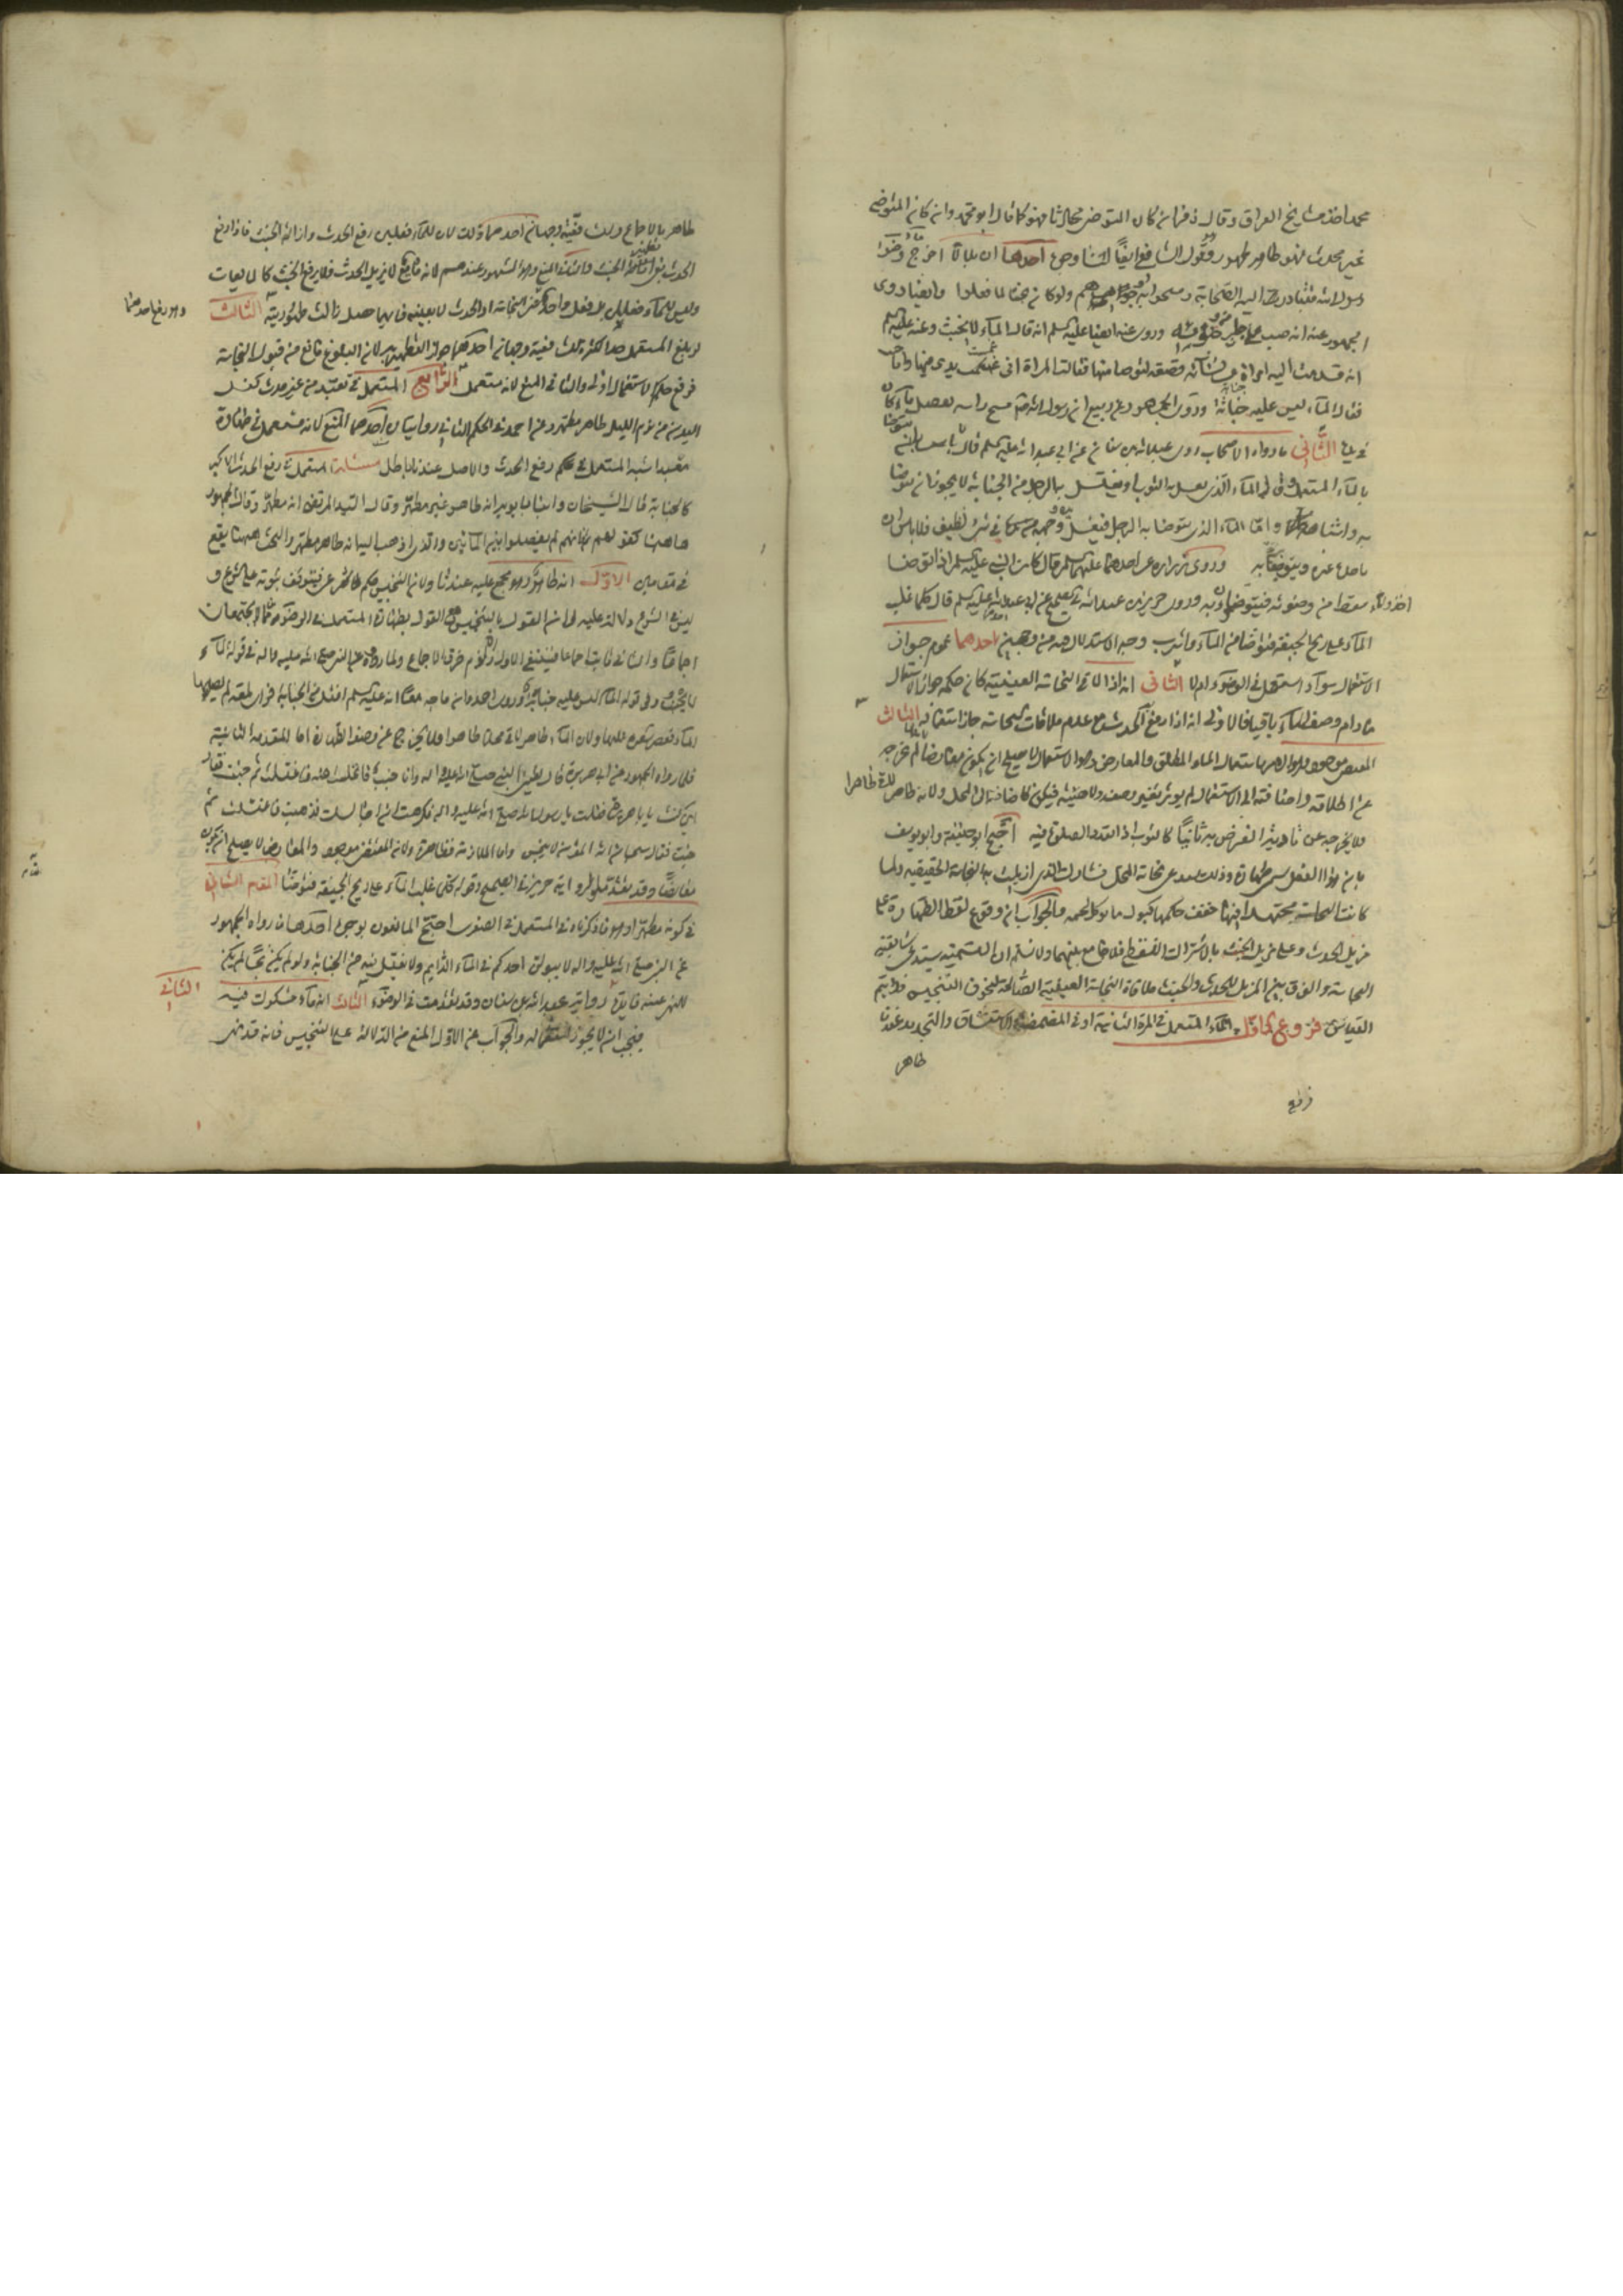 محمد اخذ مشايخ العراق وقال زفر ان كان المتوضي محدثا فهو كما قال ابو محمد وان كان المتوضي
غير محدث فهو طاهر طهور وهو قول الشافعي ايضا لنا وجوه احدها ان بلالا اخرج وضوء
رسول الله فتبادرت اليه الصحابة ومسحوا به وجوههم ولو كان نجسا لما فعلوا وايضا روى
الجمهور عنه انه صب على جابر من وضوئه وروى عنه ايضا عليه السلم انه قال الماء لا يخبث وعنه عليه السلم
انه قدمت اليه امراة من نسائه قصعة ليتوضا منها فقالت المراة اني غمست يدي فيها وانا جنب
فقال الماء ليس عليه جنابة ورووا الجمهور عن ربيع ان رسول الله مسح راسه بفضل ماء كان
في يده الثاني ما رواه الاصحاب روى عبد الله بن سنان عن ابي عبد الله عليه السلم قال لا باس بان يتوضا
بالماء المستعمل وقال الماء الذي يغسل به الثوب او يغتسل به الرجل من الجنابة لا يجوز ان يتوضا
به واشباهه واما الماء الذي يتوضا به الرجل فيغسل به وجهه ويده في شيء نظيف فلا باس ان
ياخذه غيره ويتوضا به وروى زرارة عن احدهما عليهما السلم قال كان النبي عليه السلم اذا توضا
اخذ ما يسقط من وضوئه فيتوضون به وروى حريز بن عبد الله في الصحيح عن ابي عبد الله عليه السلم قال كلما غلب
الماء على ريح الجيفة فتوضا من الماء واشرب وجه الاستدلال به من وجهين احدهما عموم جواز
الاستعمال سواء استعمل في الوضوء او لا الثاني انه اذا لاقى النجاسة العينية كان حكمه جواز الاستعمال
ما دام وصف الماء باقيا فالاولى انه اذا رفع الحدث مع عدم ملاقات النجاسة جاز استعماله الثالث
المقتضي موجود وهو الامر باستعمال الماء المطلق والمعارض وهو الاستعمال لا يصلح ان يكون معارضا لم يخرجه
عن اطلاقه واضافته الى الاستعمال لم يؤثر تغيير وصفه ولا حقيقته فيكون كاضافته الى المحل ولانه طاهر لاقى طاهرا
فلا يخرجه عن تادية الفرض به ثانيا كالثوب اذا تعدد الصلوة فيه احتج ابو حنيفة وابو يوسف
بان هذا الفعل سمي طهارة وذلك يستدعي نجاسة المحل فشارك الذي ازيلت به النجاسة الحقيقية ولما
كانت النجاسة مجتهدا فيها خفف حكمها كبول ما يوكل لحمه والجواب ان وقوع لفظ الطهارة على
مزيل الحدث وعلى مزيل الخبث بالاشتراك اللفظي فلا جامع بينهما ولا نسلم ان التسمية يستدعي سابقية
النجاسة والفرق بين المزيل للحدث والخبث ملاقاة النجاسة العينية الصالحة لتخوف التنجيس فلا يتم
القياس فروع الاول الماء المستعمل في المرة الثانية او في المضمضة والاستنشاق والتجديد عندنا
طاهر
طاهر بالاجماع ولنا فيه وجهان احدهما ذلك لان للماء فعلين رفع الحدث وازالة الخبث فاذا رفع
الحدث بقي تطهير الخبث والثاني المنع وهو المشهور عندهم لانه مائع لا يزيل الحدث فلا يرفع الخبث كالمايعات
وليس للماء فعلان بل فعل واحد وهو رفع احدهما من النجاسة او الحدث لا بعينه فايهما حصل زالت طهوريته الثالث
لو بلغ المستعمل حد الكثرة ففيه وجهان احدهما جواز التطهير به لان البلوغ مانع من قبول النجاسة
فرفع حكم الاستعمال اولى والثاني المنع لانه مستعمل الرابع المستعمل في تعبد من غير حدث كغسل
اليدين من نوم الليل طاهر مطهر وعن احمد في الحكم الثاني روايتان احدهما المنع لانه مستعمل في طهارة
تعبد اشبه المستعمل في رفع الحدث والاصل عندنا باطل مسئلة المستعمل في رفع الحدث الاكبر
كالجنابة قال الشيخان وابنا بابويه انه طاهر غير مطهر وقال السيد المرتضى انه مطهر وقال الجمهور
هاهنا كقولهم هناك فانهم لم يفصلوا بين المائين والذي اذهب اليه انه طاهر مطهر والبحث ههنا يقع
في مقامين الاول انه طاهر وهو مجمع عليه عندنا ولان التنجيس حكم شرعي فيتوقف ثبوته على الشرع و
ليس في الشرع دلالة عليه ولان القول بالتنجيس مع القول بطهارة المستعمل في الوضوء مما لا يجتمعان
اجماعا والثاني ثابت اجماعا فينتفي الاول والا لزم خرق الاجماع ولما رووه عن النبي صلى الله عليه واله في قوله الماء
لا يخبث وفي قوله الماء ليس عليه جنابة وروى احمد وابن ماجه معا انه عليه السلم اغتسل من الجنابة فراى لمعة لم يصبها
الماء فعصر شعره عليها ولان الماء طاهر لاقى محلا طاهرا فلا يخرج عن وصف الطهارة اما المقدمة الثانية
فلما رواه الجمهور عن ابي هريرة قال لقيني النبي صلى الله عليه واله وانا جنب فانخنست منه فاغتسلت ثم جئت فقال
اين كنت يا با هريرة فقلت يا رسول الله صلى الله عليه واله كرهت ان اجالسك فذهبت فاغتسلت ثم
جئت فقال سبحان الله المؤمن لا ينجس واما الملازمة فظاهرة ولان المقتضي موجود والمعارض لا يصلح ان يكون
معارضا وقد تقدم ولرواية حريز في الصحيح وقوله كلما غلب الماء على ريح الجيفة فتوضا المقام الثاني
في كونه مطهرا وهو ما ذكرناه في المستعمل في الصغرى احتج المانعون بوجوه احدها ما رواه الجمهور
عن النبي صلى الله عليه واله لا يبولن احدكم في الماء الدايم ولا يغتسل فيه من الجنابة ولو لم يكن نجسا لم يكن
للنهي عنه فايدة الثاني رواية عبد الله بن سنان وقد تقدمت في الوضوء الثالث انه ماء مشكوك فيه
فيجب ان لا يجوز استعماله والجواب عن الاول المنع من الدلالة على التنجيس فانه قد نهى